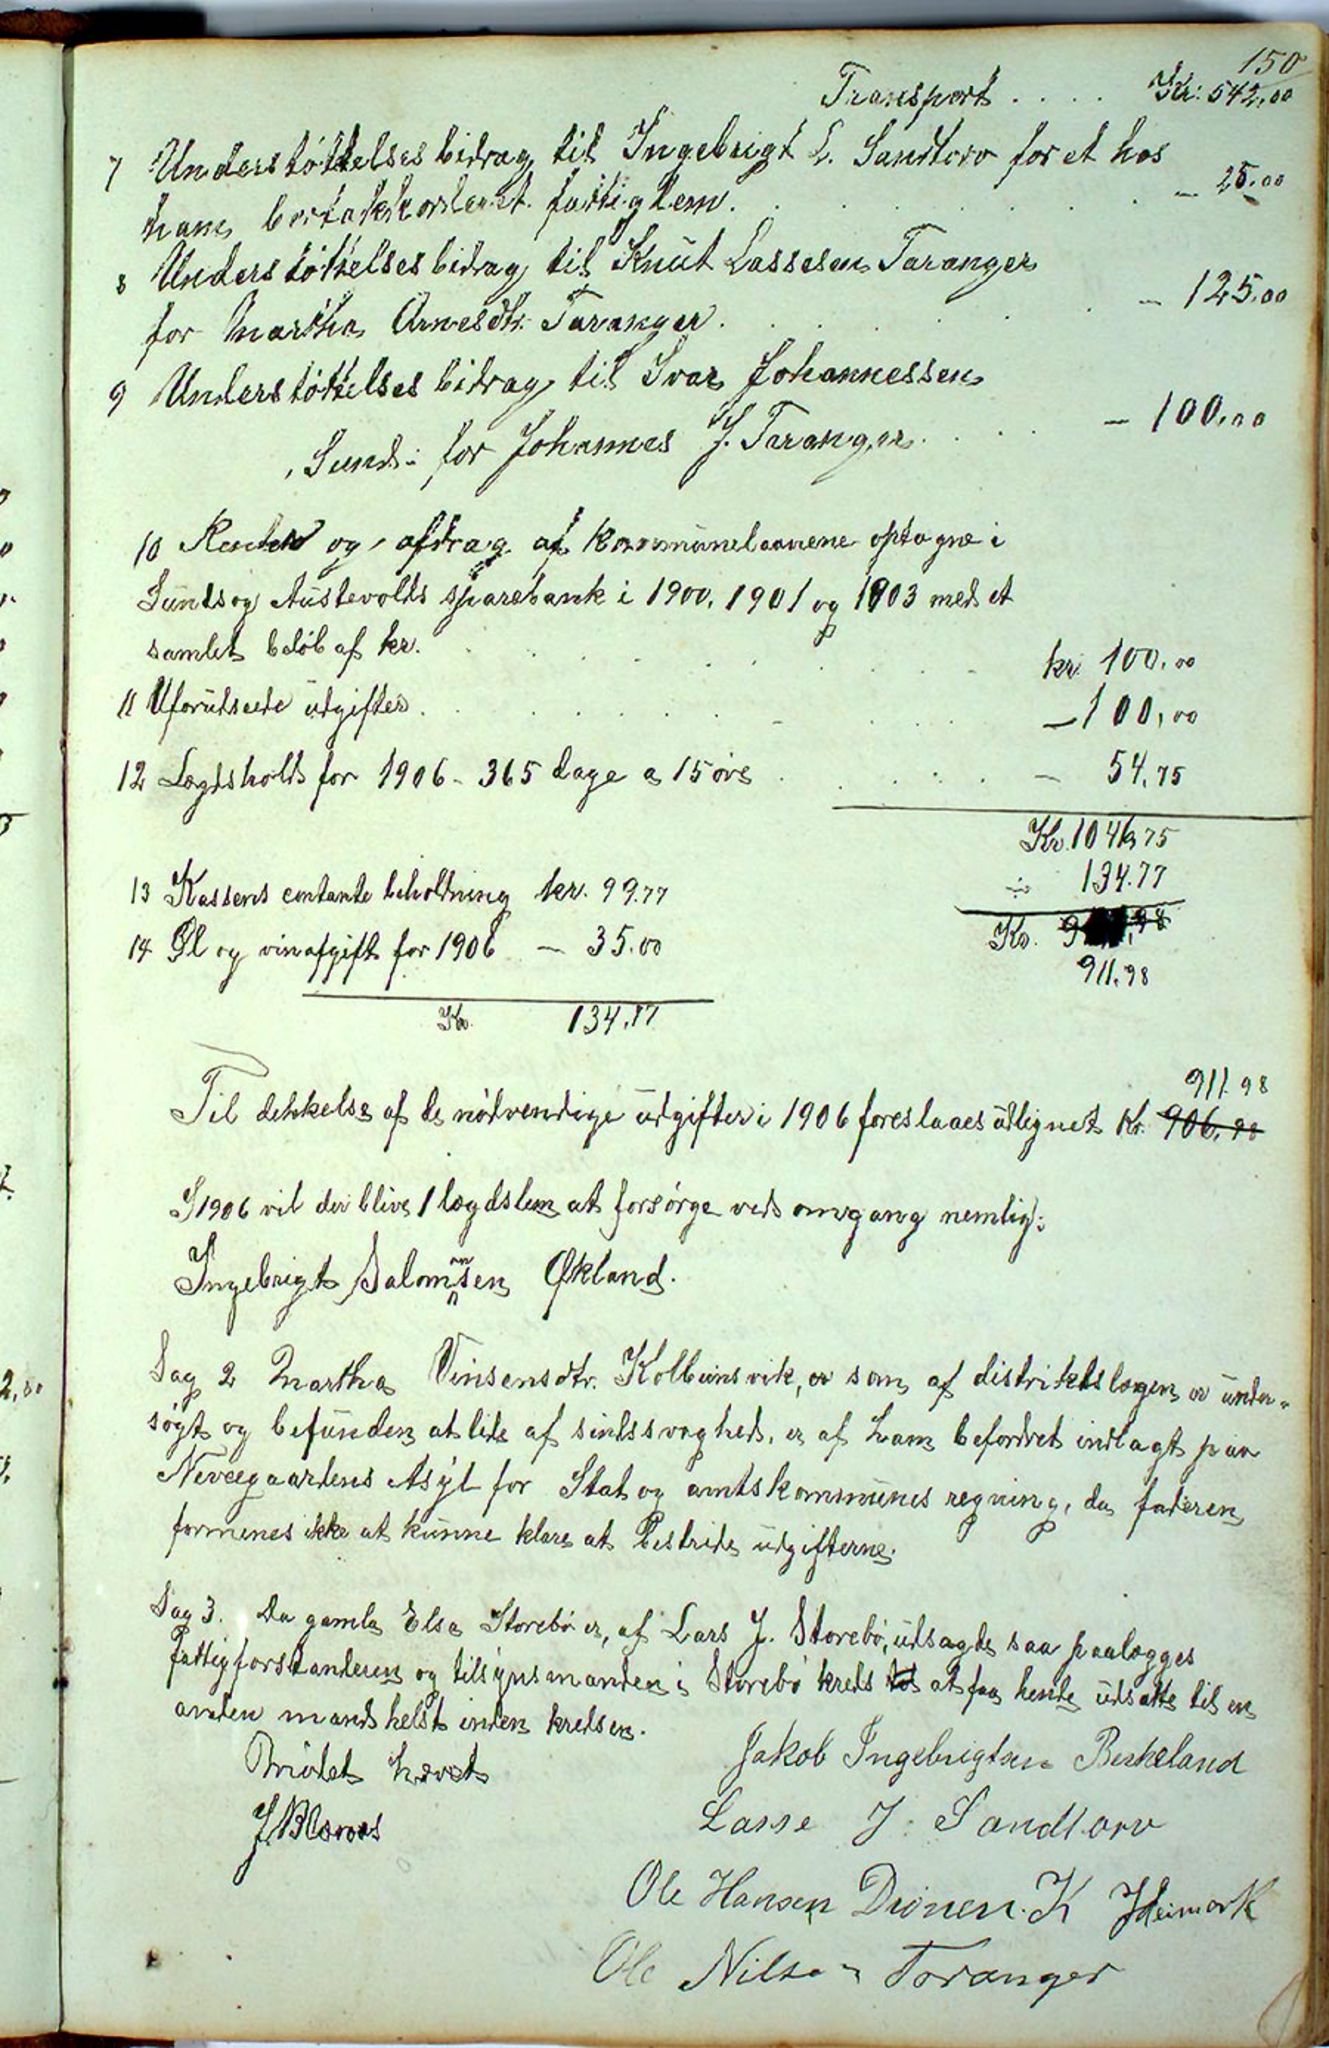 150
Transport . . . . Kr: 542,00
7 Understöttelsesbidrag til Ingebrigt L. Sandtorv for et hos
ham bortakkorderet fattiglem. — 25.00
8 Understöttelsesbidrag til Knut Lassesen Taranger
for Martha Arnesdtr. Taranger. — 125.00
9 Understöttelsesbidrag til Ivar Johannessen
Sund: for Johannes J. Taranger. — 100,00
10 Renter og afdrag af kommunelaanene optagne i
Sunds og Austevolds sparebank i 1900, 1901 og 1903 med et
samlet belöb af kr. kr. 100,00
11 Uforudseede udgifter. — 100,00
12 Lægdshold for 1906 - 365 dage a 15 öre — 54,75
Kr. 1046,75
13 Kassens contante beholdning kr. 99.77 ÷ 134.77
14 Øl og vinafgift for 1906 — 35.00 Kr.
911,98
Kr. 134,77
911.98
Til dekkelse af de nödvendige udgifter i 1906 foreslaaes udlignet Kr. 906,98
I 1906 vil der blive 1 lægdslem at forsörge ved omgang nemlig:
Ingebrigt Salomonsen Økland.
Sag 2 Martha Vinsensdtr. Kolbeinsvik, er som af distriktslægen er under-
sögt og befunden at lide af sindssvaghed, er af ham befordret indlagt paa
Neveegaardens Asyl for Stat og amtskommunes regning, da faderen
formenes ikke at kunne klare at bestride udgifterne.
Sag 3. Da gamle Else Storebö er, af Lars J. Storebö, udsagde saa paalægges
Fattigforstanderen og tilsynsmanden i Storebö kreds at faa hende udsatte til en
anden mandshelst inden kredsen.
Mödet hævet Jakob Ingebrigtsen Birkeland
Lasse J. Sandtorv
Ole Hansen Drönen. K Heimark
Ole Nilsen Toranger